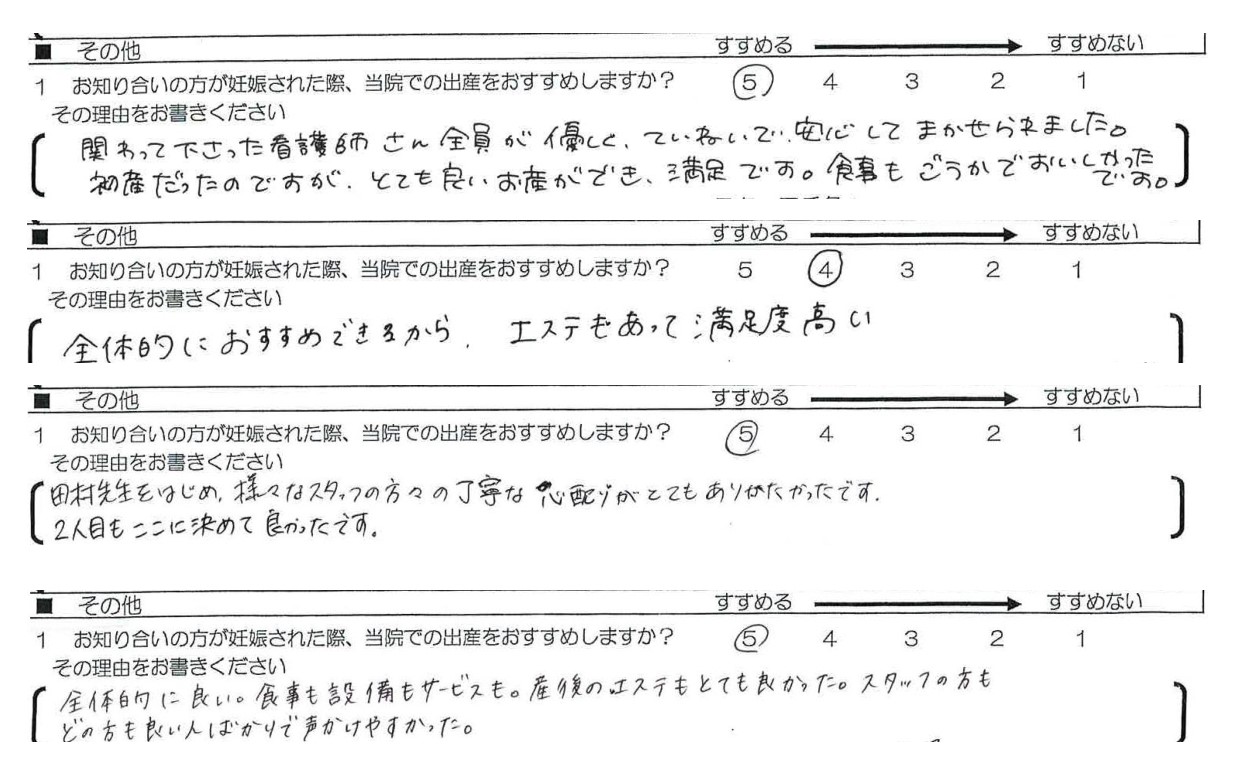 ■ その他 すすめる → すすめない
1 お知り合いの方が妊娠された際、当院での出産をおすすめしますか? 5 4 3 2 1
その理由をお書きください
関わって下さった看護師さん全員が優しく、ていねいで、安心してまかせられました。
初産だったのですが、とても良いお産ができ、満足です。食事もごうかでおいしかった
です。
■ その他 すすめる → すすめない
1 お知り合いの方が妊娠された際、当院での出産をおすすめしますか? 5 4 3 2 1
その理由をお書きください
全体的におすすめできるから、 エステもあって満足度高い
■ その他 すすめる → すすめない
1 お知り合いの方が妊娠された際、当院での出産をおすすめしますか? 5 4 3 2 1
その理由をお書きください
田村先生をはじめ、様々なスタッフの方々の丁寧な心配りがとてもありがたかったです.
2人目もここに決めて良かったです。
■ その他 すすめる → すすめない
1 お知り合いの方が妊娠された際、当院での出産をおすすめしますか? 5 4 3 2 1
その理由をお書きください
全体的に良い。食事も設備もサービスも。産後のエステもとても良かった。スタッフの方も
どの方も良い人ばかりで声かけやすかった。